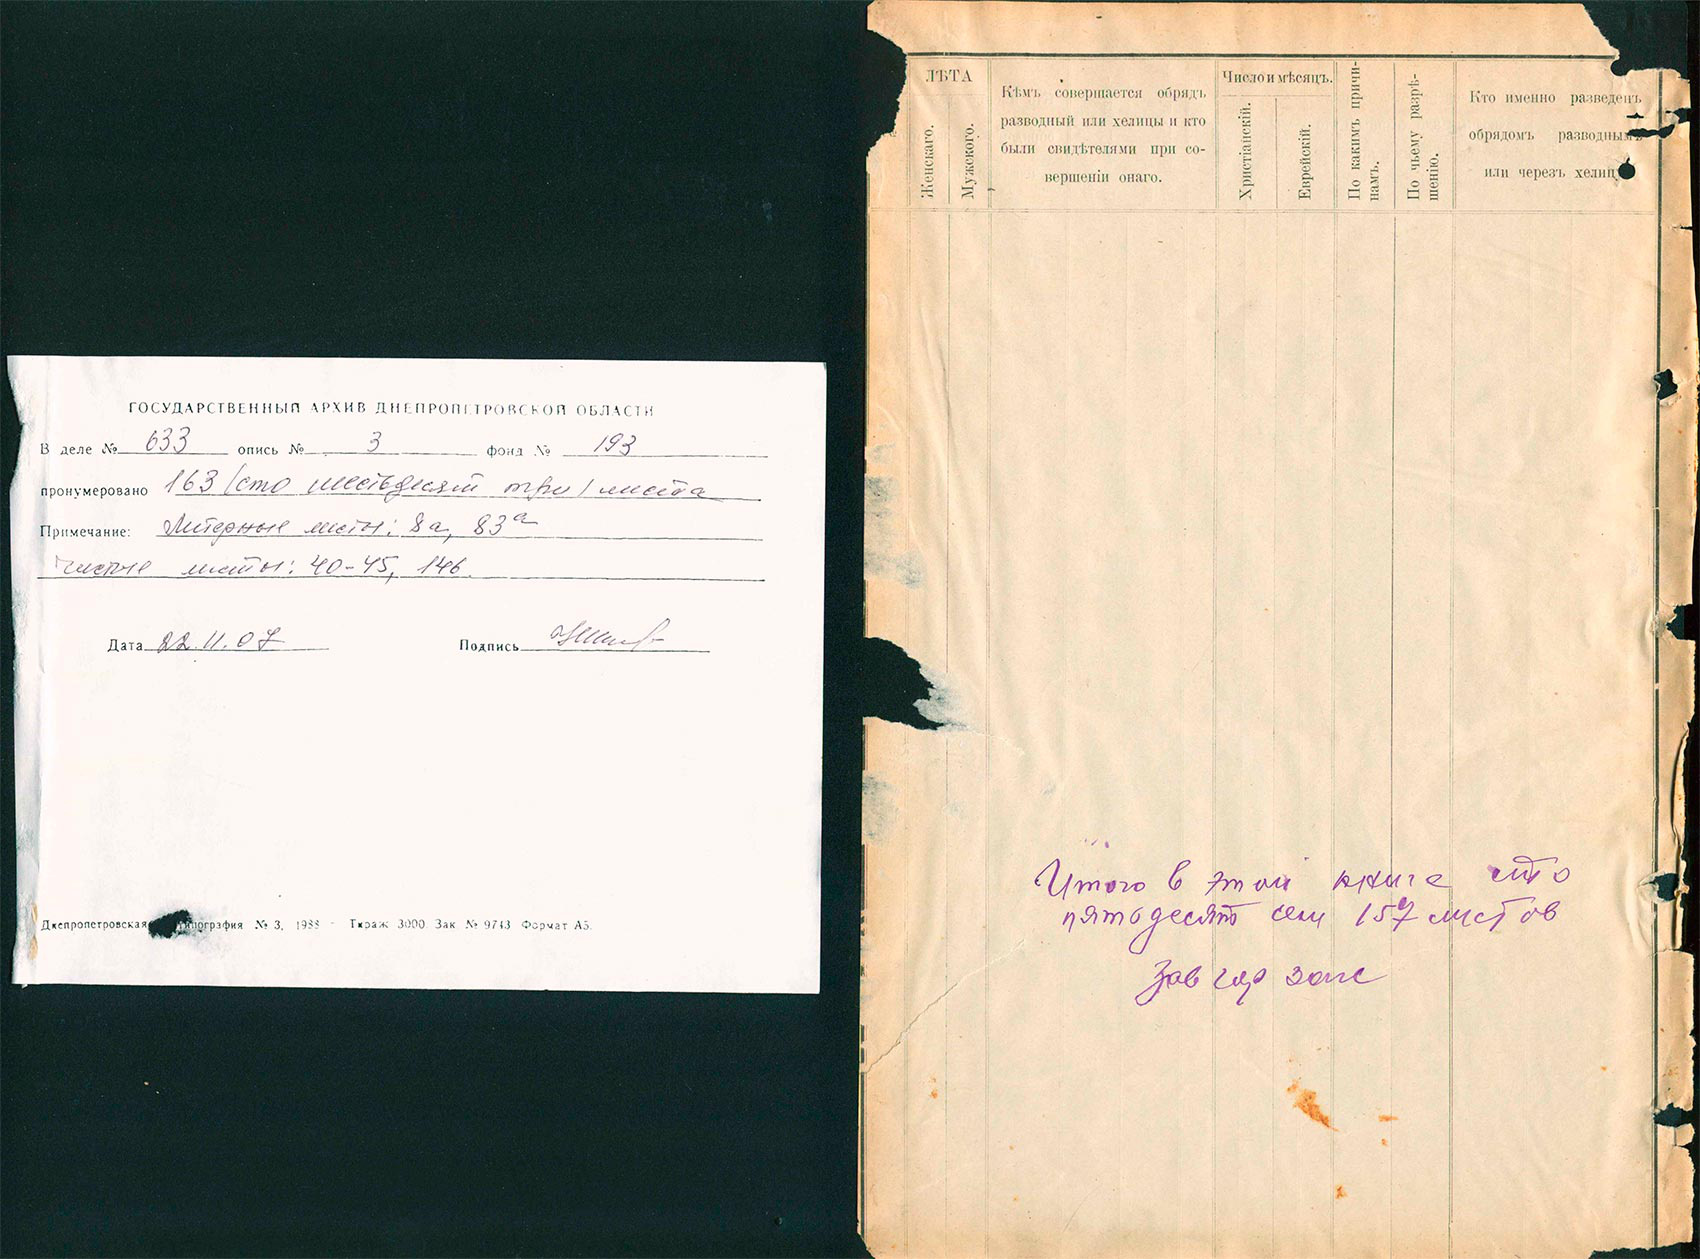 ГОСУДАРСТВЕННЫЙ АРХИВ ДНЕПРОПЕТРОВСКОЙ ОБЛАСТИ
В деле № 633 опись № 3 фонд № 193
пронумеровано 163 /сто шестьдесят три/ листа
Примечание: Литерные листы: 8а, 83а
Чистые листы: 40-45, 146
Дата 22.11.07 Подпись
Днепропетровская типография № 3, 1988 - Тираж 3000. Зак. № 9743 Формат А5.
ЛѢТА
Женскаго.
Мужского.
Кѣмъ совершается обрядъ
разводный или хелицы и кто
были свидѣтелями при со-
вершеніи онаго.
Число и мѣсяцъ.
Христіанскій.
Еврейскій.
По какимъ причи-
намъ.
По чьему разрѣ-
шенію.
Кто именно разведенъ
обрядомъ разводнымъ
или черезъ хелицу
Итого в этой книге сто
пятьдесят сем 157 листов
Зав гор загс